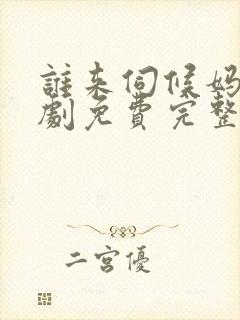 誰来伺候妈
劇免費完整
二宮優